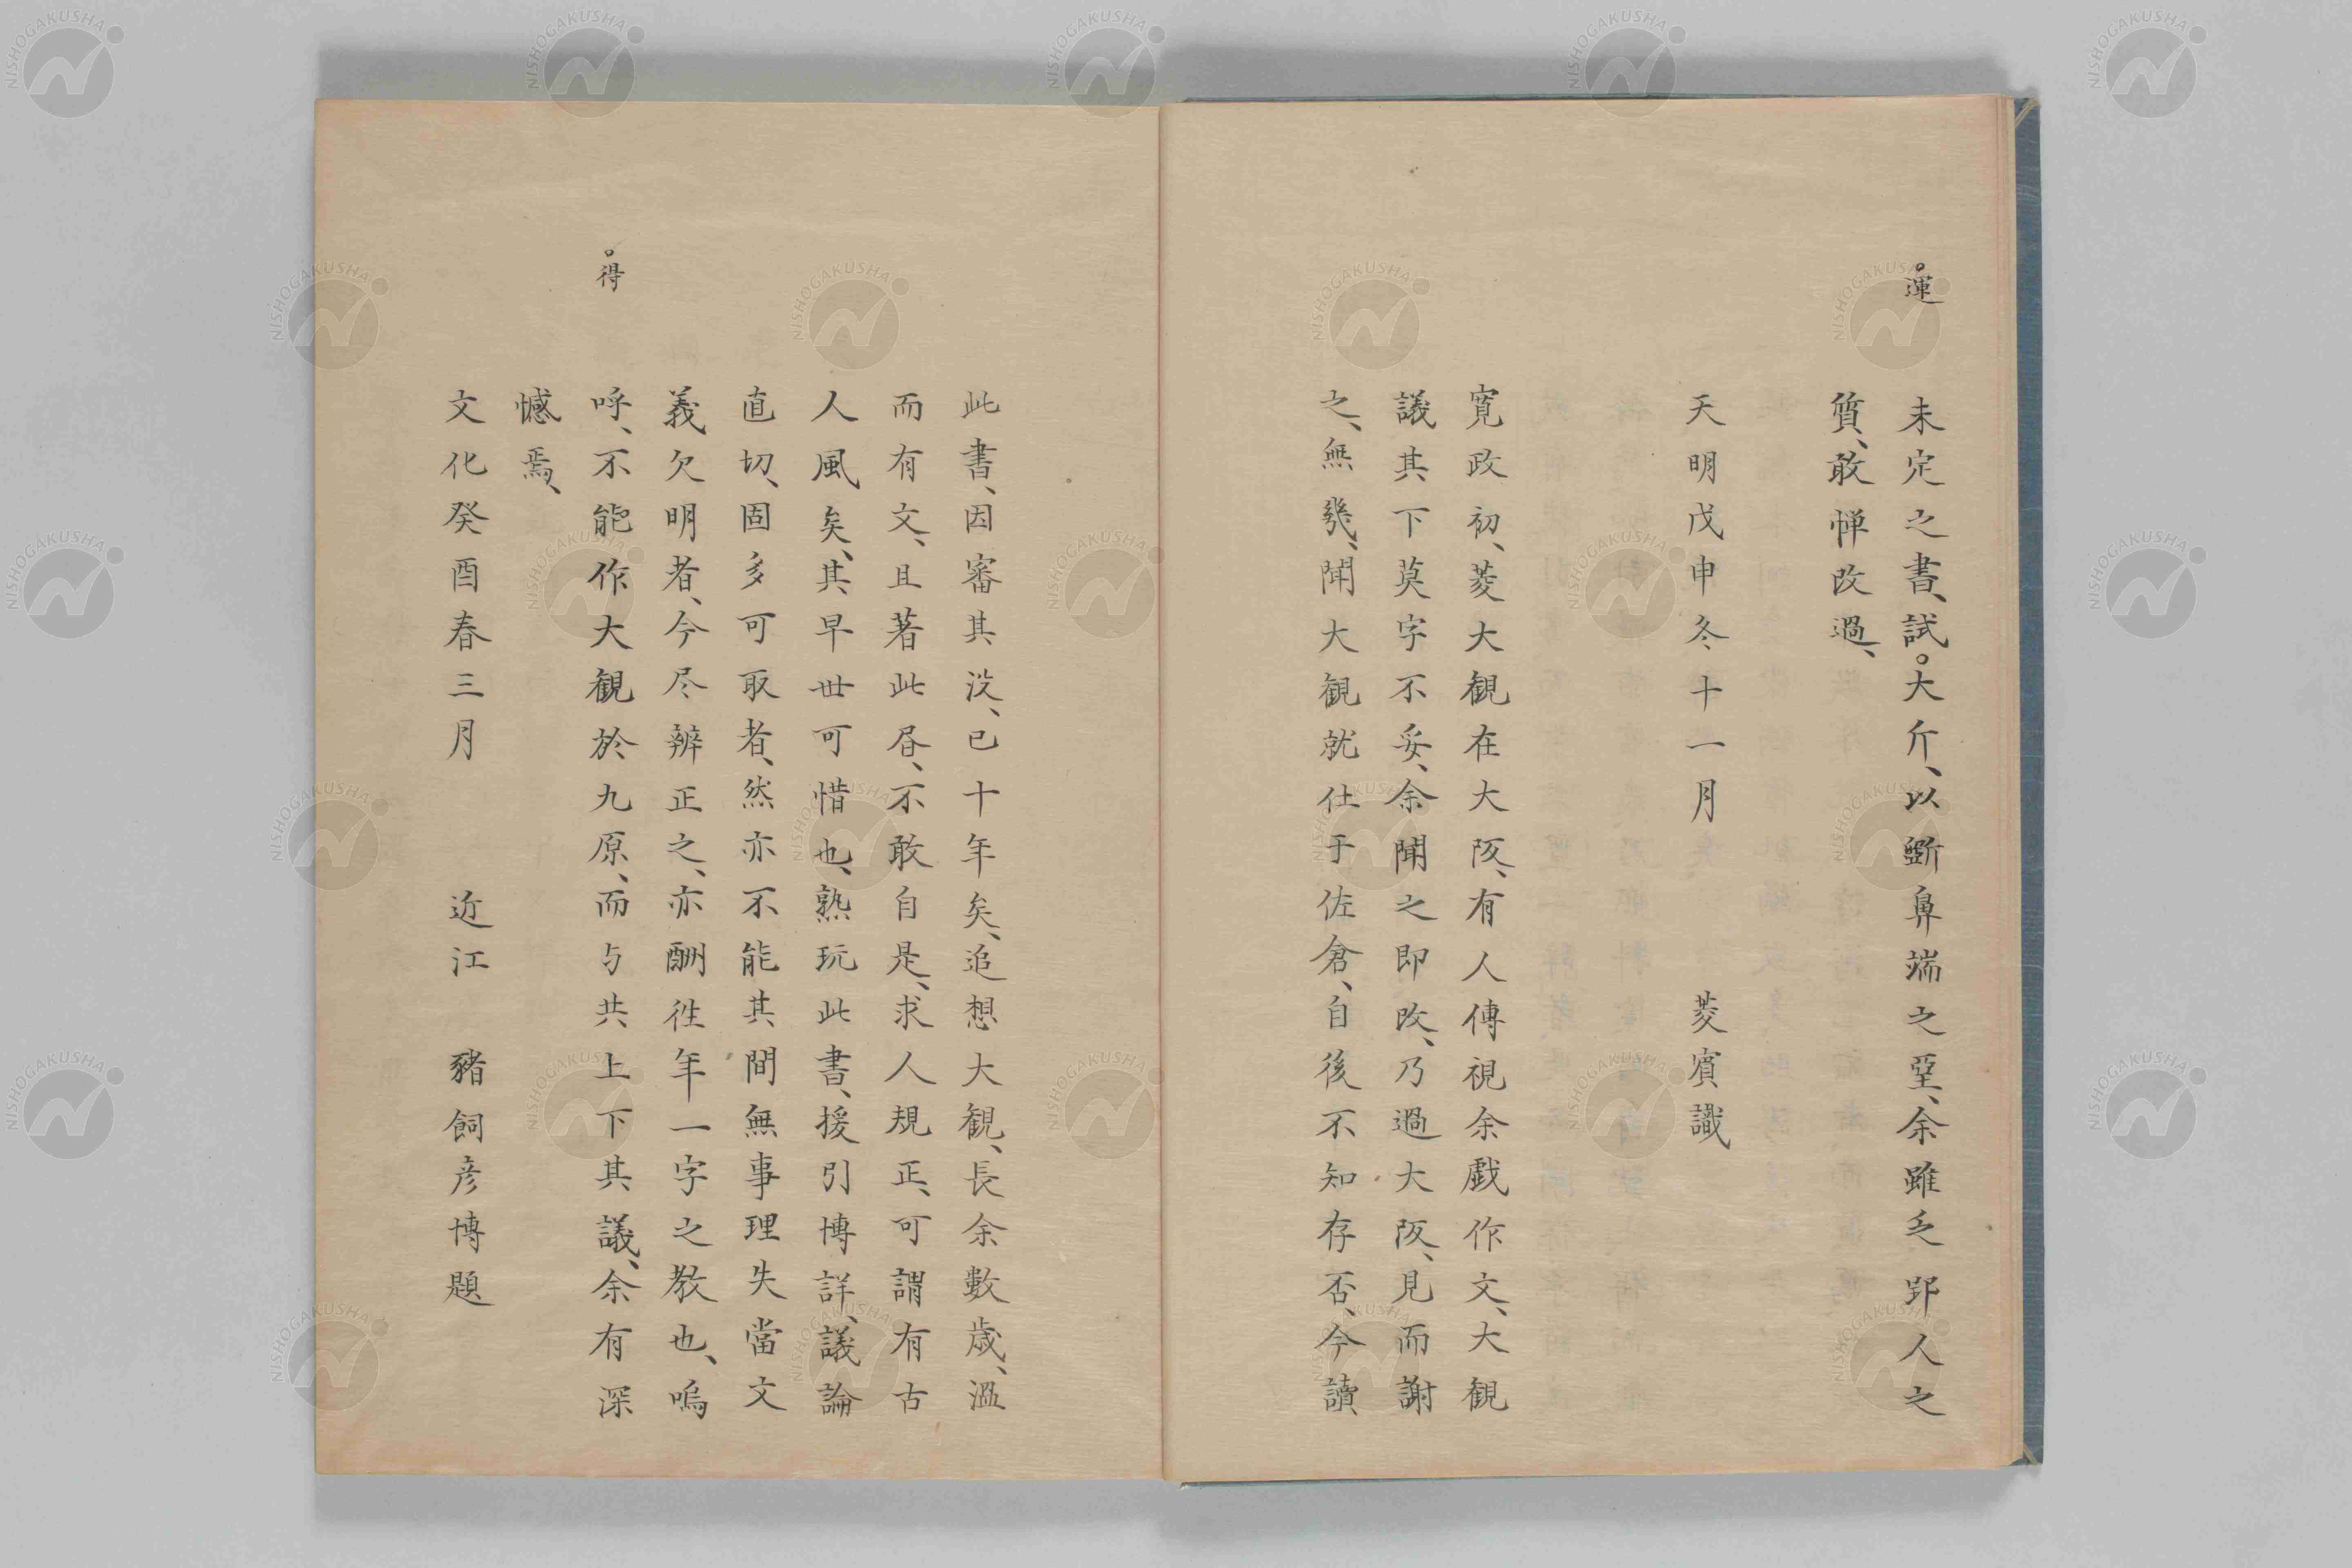 運
未定之書、試大斤、以斲鼻端之堊、余雖乏郢人之
質、敢憚改過、
天明戊申冬十一月 菱賓識
寛政初、菱大観在大阪、有人傳視余戯作文、大観
議其下莫字不妥、余聞之即改、乃過大阪、見而謝
之、無幾、聞大観就仕于佐倉、自後不知存否、今讀
此書、因審其没、已十年矣、追想大観、長余數歳、温
而有文、且著此昏、不敢自是、求人規正、可謂有古
人風矣、其早世可惜也、熟玩此書、援引博詳、議論
直切、固多可取者、然亦不能其間無事理失當文
義欠明者、今尽辨正之、亦酬徃年一字之教也、嗚
得
呼、不能作大観於九原、而与共上下其議、余有深
憾焉、
文化癸酉春三月 近江 豬飼彦博題
NISHOGAKUSHA